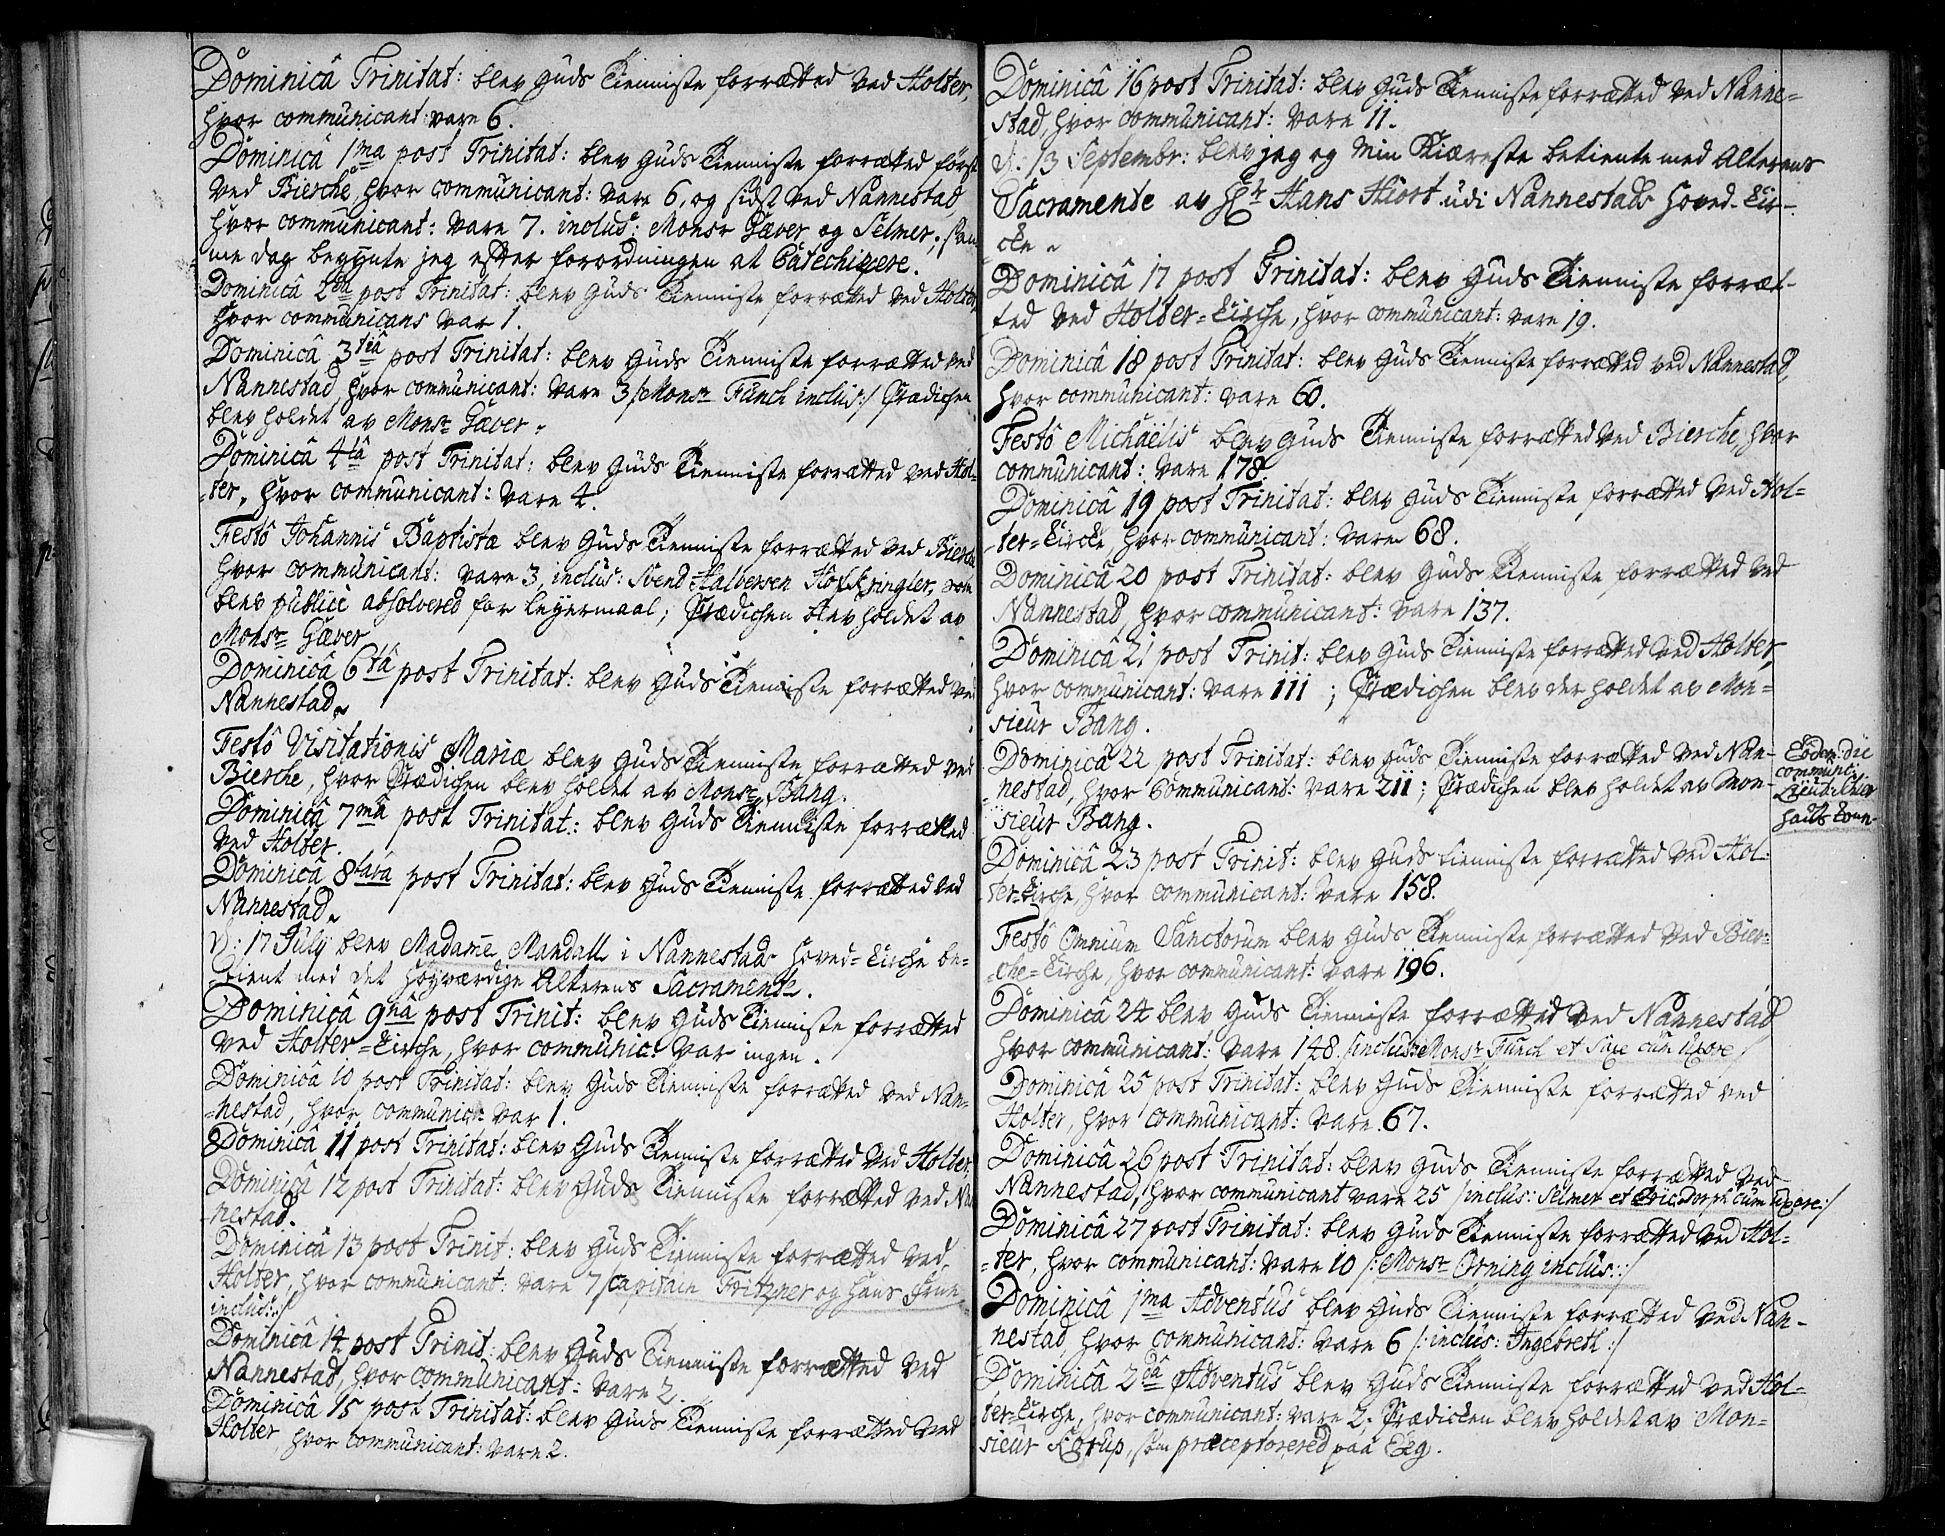 Dominicâ Trinitat: blev Guds Tienniste forrætted ved Holter,
hvor communicant: vare 6.
Dominicâ 1ma post Trinitat: blev Guds Tienniste forrætted først
ved Bierche, hvor communicant: vare 6, og sidst ved Nannestad,
hvor communicant: vare 7. inclus: Monsr Gæver og Selmer; sam
me dag begynte jeg efter forordningen at Catechizere.
Dominicâ 2dâ post Trinitat: blev Guds Tienniste forrætted ved Holter,
hvor communicans var 1.
Dominicâ 3tiâ post Trinitat: blev Guds Tienniste forrætted ved
Nannestad, hvor communicant: vare 3 /:Monsr Funch inclus:/ Prædichen
blev holdet av Monsr Gæver.
Dominicâ 4tâ post Trinitat: blev Guds Tienniste forrætted ved Hol-
-ter, hvor communicant: vare 4.
Festô Johannis Baptistæ blev Guds Tienniste forrætted ved Bierche
hvor communicant: vare 3, inclus: Svend Halversen Hofskringler, som
blev publicè absolvered for leyermaal; Prædichen blev holdet av
Monsr Gæver
Dominicâ 6tâ post Trinitat: blev Guds Tienniste forrætted ved
Nannestad.
Festô Visitationis Mariæ blev Guds Tienniste forrætted ved
Bierche, hvor Prædichen blev holdet av Monsr Bang.
Dominicâ 7mâ post Trinitat: blev Guds Tienniste forrætted
ved Holter.
Dominicâ 8tava post Trinitat: blev Guds Tienniste forrætted ved
Nannestad.
D: 17 July blev Madame Mandall i Nannestads Hoved-Kirche be-
tient med det høyværdige Alterens Sacramente.
Dominicâ 9nâ post Trinit: blev Guds Tienniste forrætted
ved Holter-Kirche, hvor communic: var ingen.
Dominicâ 10 post Trinitat: blev Guds Tienniste forrætted ved Nan-
-nestad, hvor communic: var 1.
Dominicâ 11 post Trinitat: blev Guds Tienniste forrætted ved Holter.
Dominicâ 12 post Trinitat: blev Guds Tienniste forrætted ved Na
nestad.
Dominicâ 13 post Trinit: blev Guds Tienniste forrætted ved
Holter, hvor communicant: vare 7 /:Capitain Fritzner og hans Frue
inclus:/
Dominicâ 14 post Trinit: blev Guds Tienniste forrætted ved
Nannestad, hvor communicant: vare 2.
Dominicâ 15 post Trinitat: blev Guds Tienniste forrætted ved
Holter, hvor communicant: vare 2.
Dominicâ 16 post Trinitat: blev Guds Tienniste forrætted ved Nanne-
stad, hvor communicant: vare 11.
d: 13 Septembr: blev jeg og min Kiæreste betiente med Alterens
Sacramente av Hr Hans Hiort udi Nannestads Hoved-Kir-
cke.
Dominicâ 17 post Trinitat: blev Guds Tienniste forræt-
ted ved Holter-Kirche, hvor communicant: vare 19.
Dominicâ 18 post Trinitat: blev Guds Tienniste forrætted ved Nannestad,
hvor communicant: vare 60.
Festô Michaëlis blev Guds Tienniste forrætted ved Bierche, hvor
communicant: vare 178.
Dominicâ 19 post Trinitat: blev Guds Tienniste forrætted ved Hol-
-ter-Kircke, hvor communicant: vare 68.
Dominicâ 20 post Trinitat: blev Guds Tienniste forrætted ved
Nannestad, hvor communicant: vare 137.
Dominicâ 21 post Trinit: blev Guds Tienniste forrætted ved Holter,
hvor communicant: vare 111; Prædichen blev der holdet av Mon-
sieur Bang.
Dominicâ 22 post Trinitat: blev Guds Tienniste forrætted ved Nan-
-nestad, hvor Communicant: vare 211; Prædichen blev holdet av Mon-
sieur Bang.
Eôdem die
communi:
Dominicâ 23 post Trinit: blev Guds tienniste forrætted ved Hol-
ter-Kirche, hvor communicant: vare 158.
Festô Omnium Sanctorum blev Guds Tienniste forrætted ved Bier-
-che-Kirche, hvor communicant: vare 196.
Dominicâ 24 blev Guds Tienniste forrætted ved Nannestad
hvor communicant: vare 148. /:inclus: Monsr Funch et Saxe cum Uxore:/
Dominicâ 25 post Trinitat: blev Guds Tienniste forrætted ved
Holter, hvor communicant: vare 67.
Dominicâ 26 post Trinitat: blev Guds Tienniste forrætted ved
Nannestad, hvor communicant vare 25 /:inclus: Selmer et Eric Dorph cum Uxore:/
Dominicâ 27 post Trinitat: blev Guds Tienniste forrætted ved Hol-
-ter, hvor communicant: vare 10 /:Monsr Orning inclus:/
Dominicâ 1ma Adventus blev Guds Tienniste forrætted ved Nan-
nestad, hvor communicant: vare 6 /:inclus: Ingebreth:/
Dominicâ 2dâ Adventus blev Guds Tienniste forrætted ved Hol-
ter-Kirche, hvor communicant: vare 2. Prædicken blev holdet av Mon-
sieur Korup, som præceptorered paa Eeg.